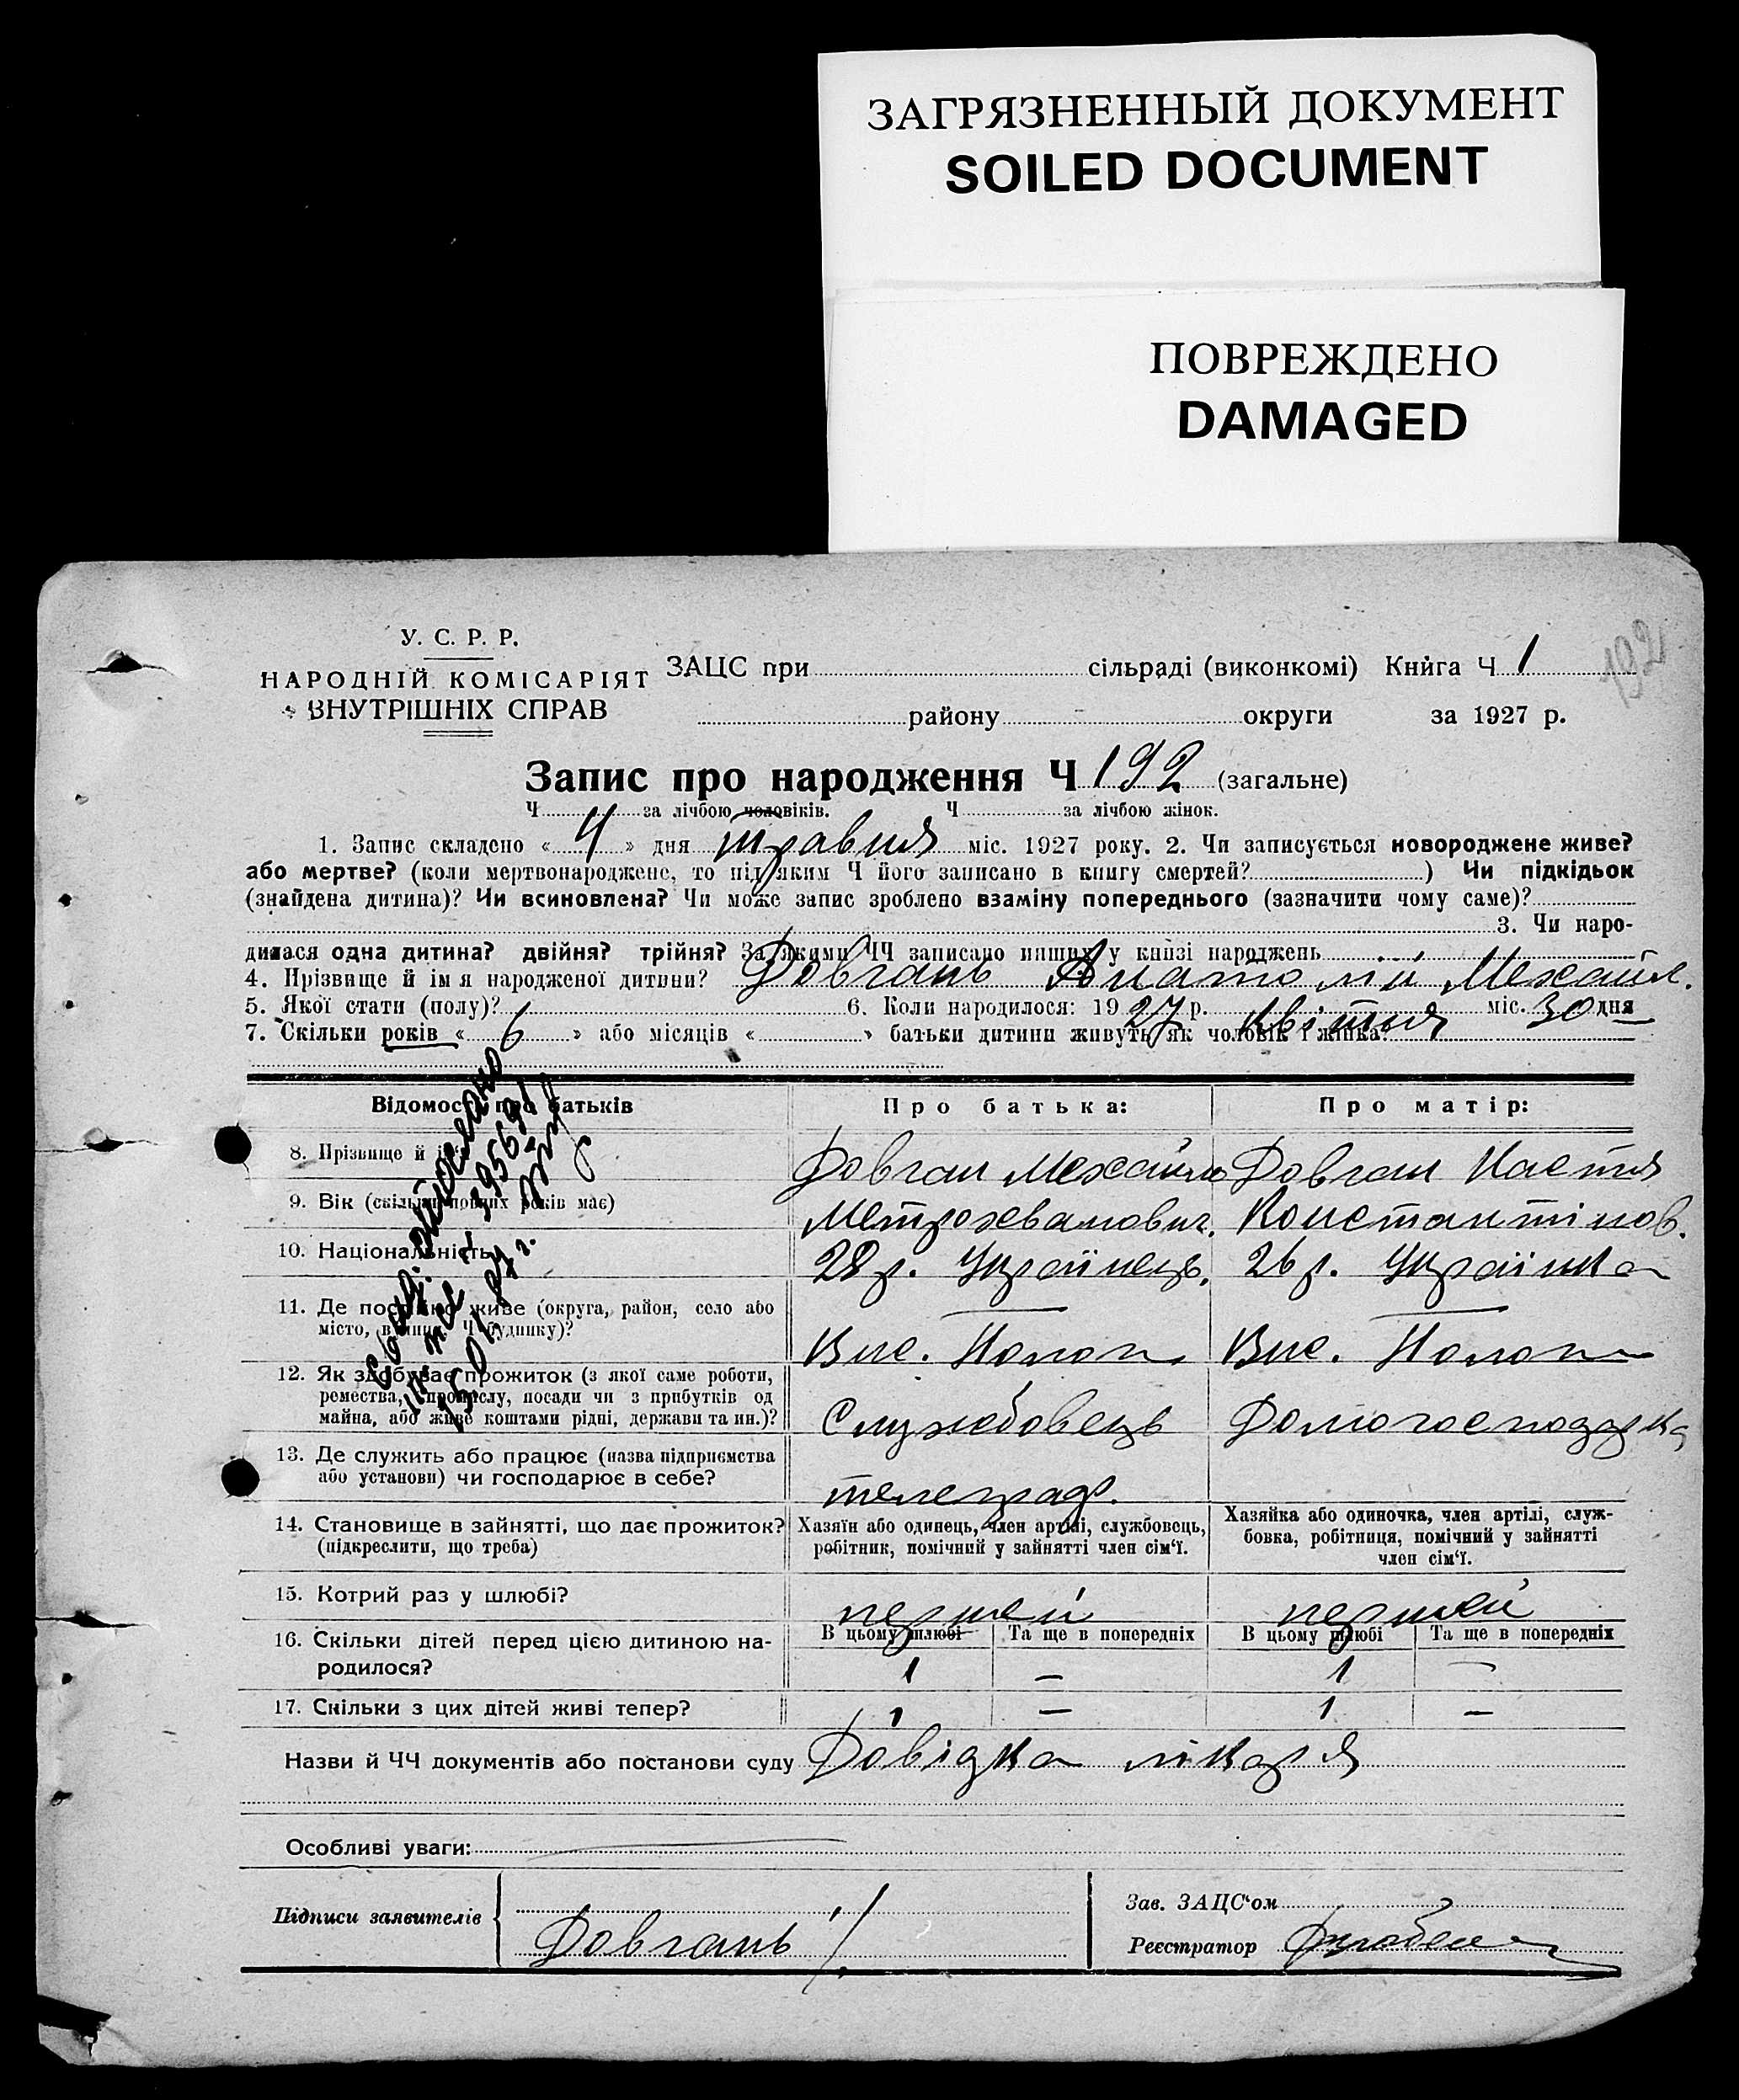 ЗАГРЯЗНЕННЫЙ ДОКУМЕНТ
SOILED DOCUMENT
ПОВРЕЖДЕНО
DAMAGED
192
У. С. Р. Р.
НАРОДНІЙ КОМІСАРІЯТ
ВНУТРІШНІХ СПРАВ
ЗАЦС при сільраді (виконкомі) Книга Ч 1
району округи за 1927 р.
Запис про народження Ч 192 (загальне)
Ч за лічбою чоловіків. Ч за лічбою жінок.
1. Запис складено « 4 » дня травня міс. 1927 року. 2. Чи записується новороджене живе?
або мертве? (коли мертвонароджене, то під яким Ч його записано в книгу смертей? ) Чи підкідьок
(знайдена дитина)? Чи всиновлена? Чи може запис зроблено взаміну попереднього (зазначити чому саме)?
3. Чи наро-
дилася одна дитина? двійня? трійня? За якими ЧЧ записано инших у книзі народжень
4. Прізвище й ім я народженої дитини? Довгань Анатолій Михайл.
5. Якої стати (полу)? 6. Коли народилося: 1927 р. квітня міс. 30 дня
7. Скільки років « 6 » або місяців « » батьки дитини живуть як чоловік і жінка?
Відомості про батьків Про батька: Про матір:
8. Прізвище й ім'я Довган Михайло Довган Настя
9. Вік (скільки повних років має) Митрохванович. Константінов.
10. Національність 28 р. Українець. 26 р. Українка
11. Де постійно живе (округа, район, село або
місто, вулиця, Ч будинку)? Вис. Пологи Вис. Пологи
12. Як здобуває прожиток (з якої саме роботи,
ремества, промислу, посади чи з прибутків од
майна, або живе коштами рідні, держави та ин.)? Службовець Домогосподарка
13. Де служить або працює (назва підприємства
або установи) чи господарює в себе? телеграф.
14. Становище в зайнятті, що дає прожиток?
(підкреслити, що треба)
Хазяїн або одинець, член артілі, службовець,
робітник, помічний у зайнятті член сім'ї.
Хазяйка або одиночка, член артілі, служ-
бовка, робітниця, помічний у зайнятті
член сім'ї.
15. Котрий раз у шлюбі? перший перший
16. Скільки дітей перед цією дитиною на-
родилося?
В цьому шлюбі Та ще в попередніх В цьому шлюбі Та ще в попередніх
1 — 1 —
17. Скільки з цих дітей живі тепер? 1 — 1 —
Назви й ЧЧ документів або постанови суду Довідка лікаря
Особливі уваги:
Підписи заявителів Довгань
Зав. ЗАЦС'ом
Реєстратор